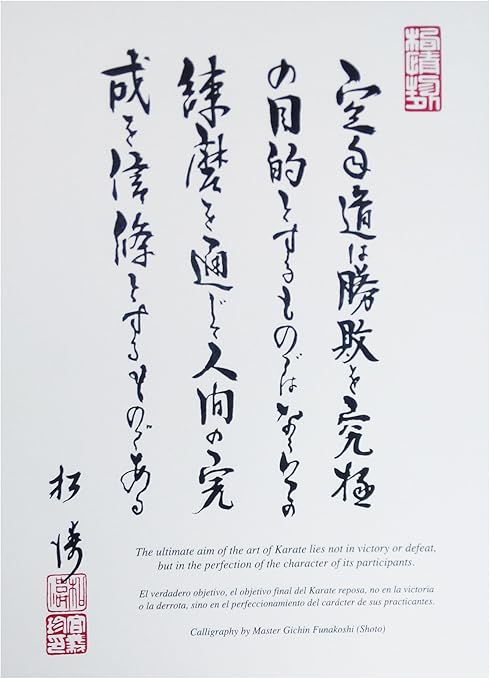 空手道は勝敗を究極
の目的とするものではなくその
練磨を通じて人間の完
成を信條とするものである
松涛
The ultimate aim of the art of Karate lies not in victory or defeat,
but in the perfection of the character of its participants.
El verdadero objetivo, el objetivo final del Karate reposa, no en la victoria
o la derrota, sino en el perfeccionamiento del carácter de sus practicantes.
Calligraphy by Master Gichin Funakoshi (Shoto)